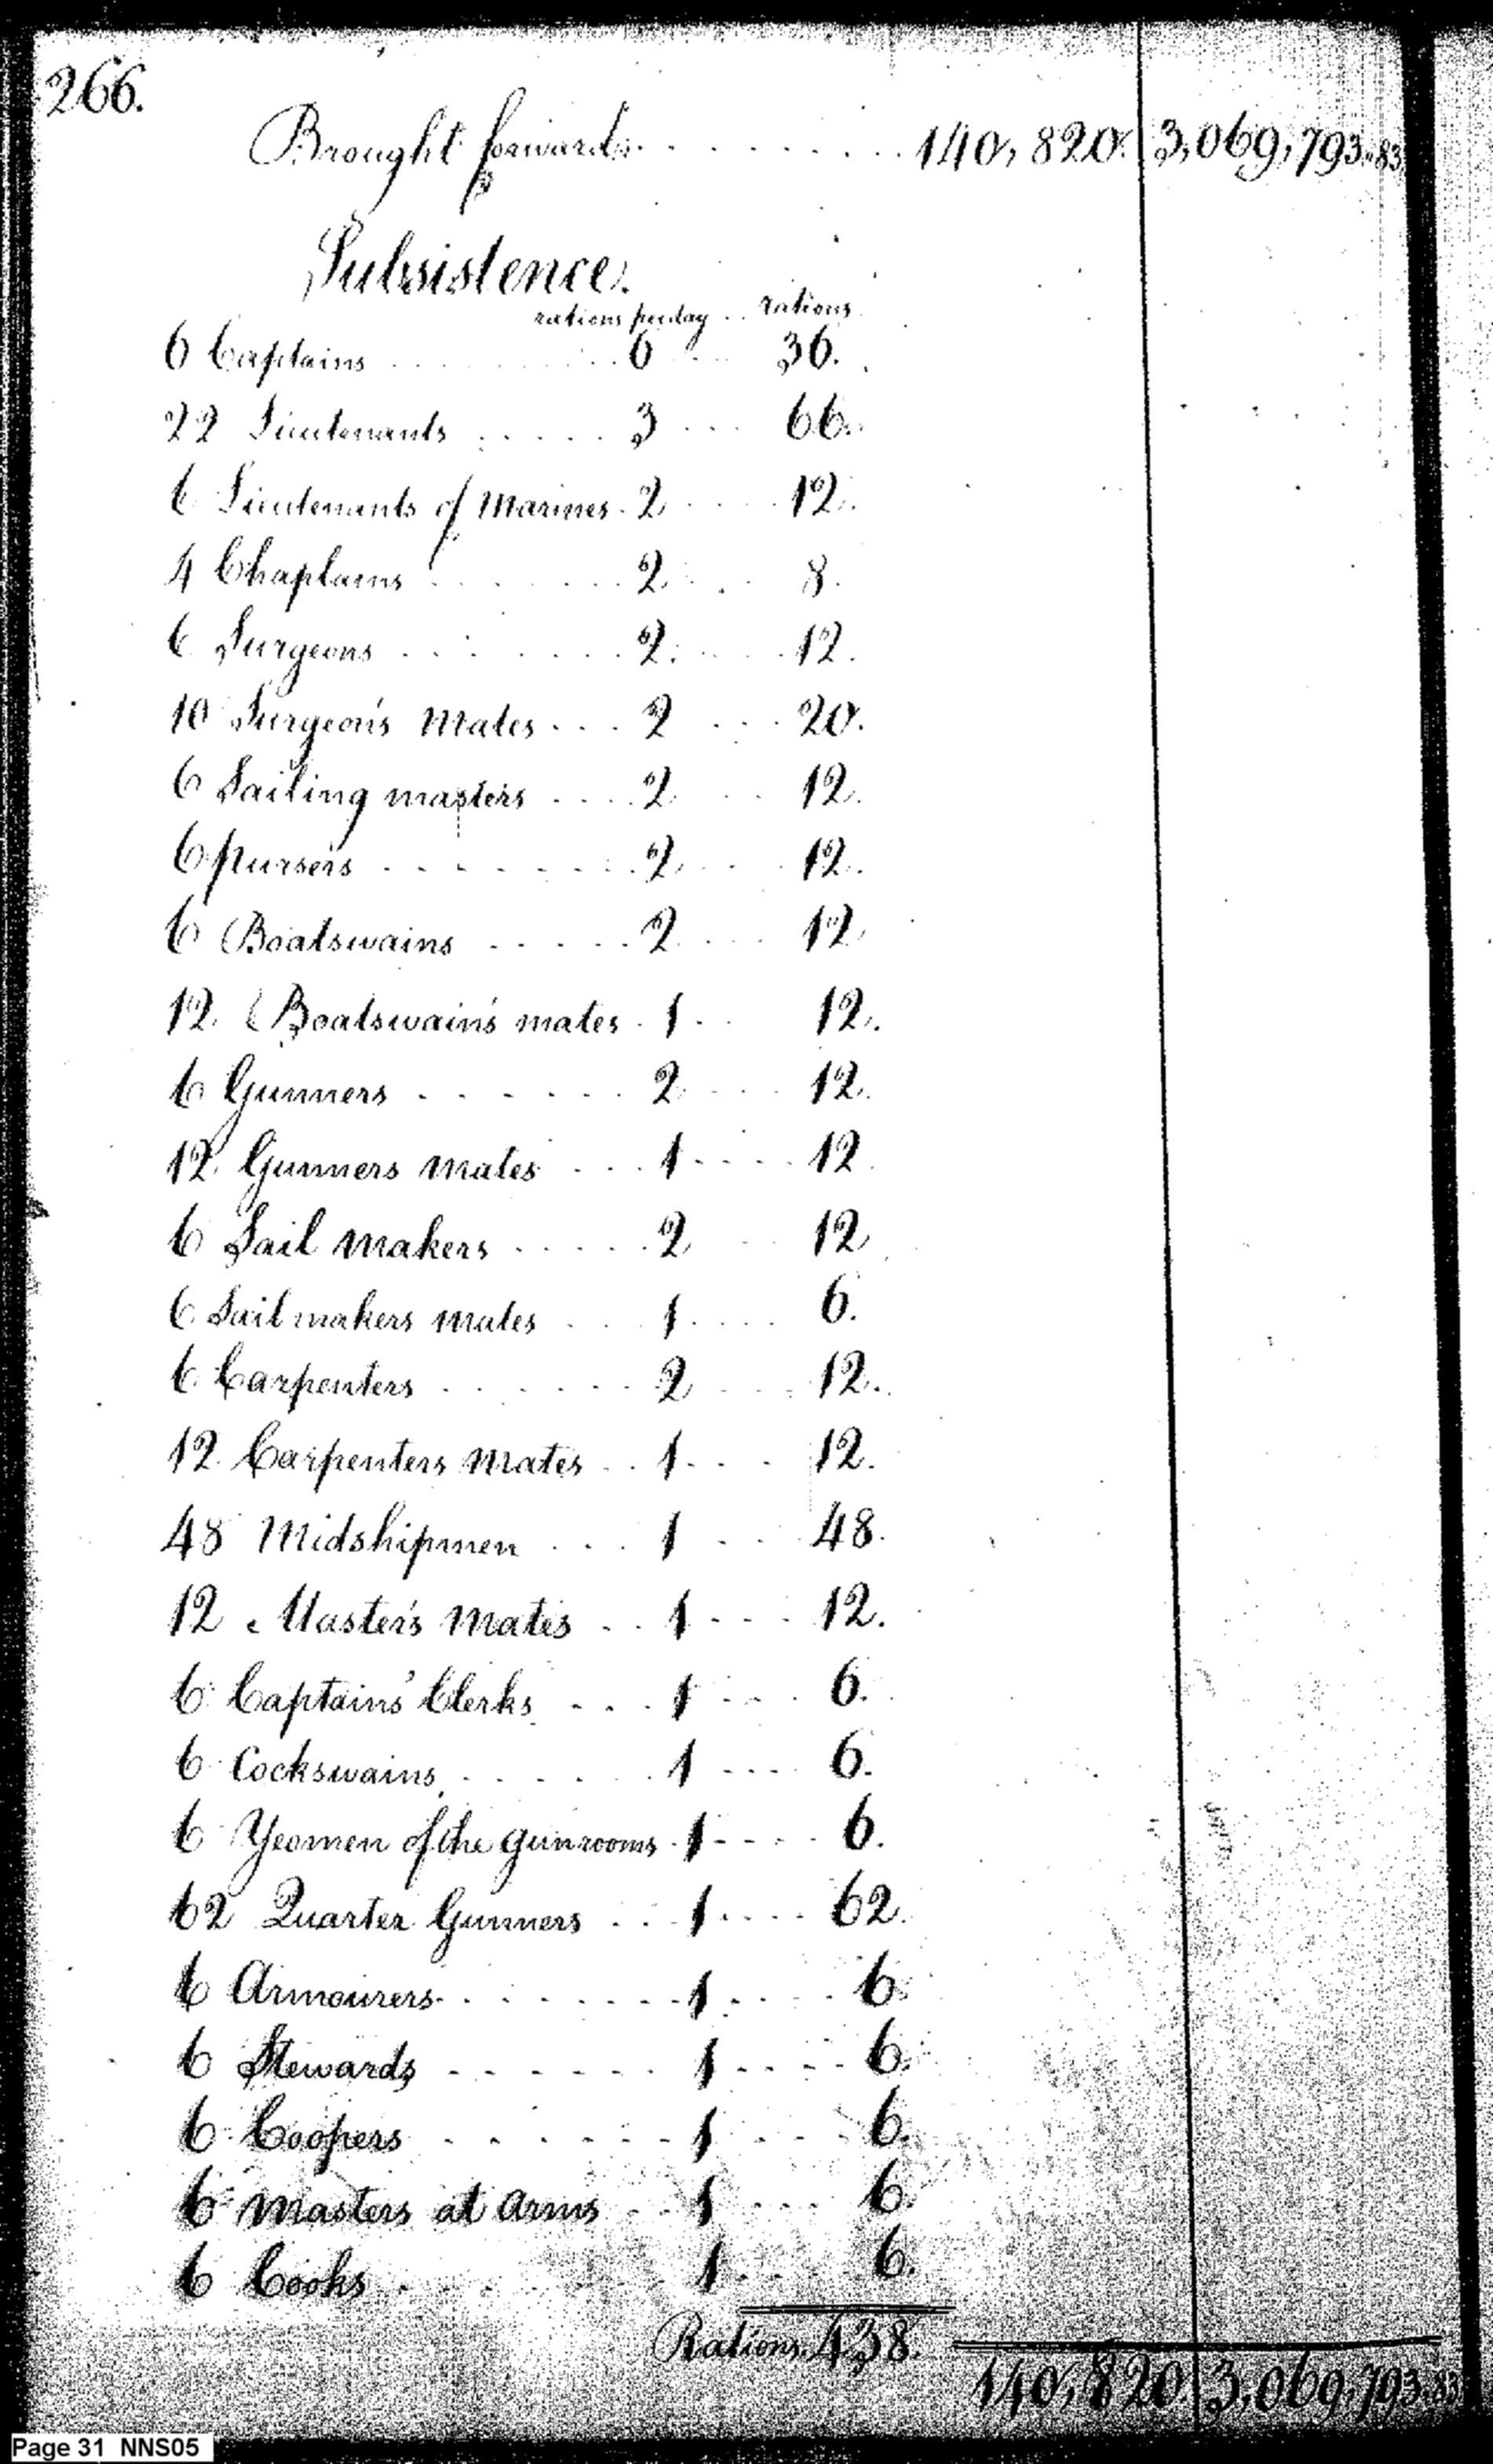 266.
Brought forward. . . . . . . . . . 140,820. 3,069,793.83
Subsistence.
rations per day . . rations
6 Captains . . . . . . . . . 6 . . . 36.
22 Lieutenants . . . . . 3 . . . 66.
6 Lieutenants of Marines . 2 . . . . 12.
4 Chaplains . . . . . . . 2 . . . 8.
6 Surgeons . . . . . . . 2. . . . . 12.
10 Surgeon's Mates . . . 2 . . . 20.
6 Sailing masters . . . . 2 . . . 12.
6 pursers . . . . . . . . 2 . . . 12.
6 Boatswains . . . . . 2 . . . . 12
12 Boatswain's mates . 1 . . 12.
6 Gunners . . . . . . 2 . . . . 12.
12 Gunners mates . . . 1 . . . . 12
6 Sail makers . . . . . 2 . . . 12
6 Sail makers mates . . . 1 . . . . 6.
6 Carpenters . . . . . . 2 . . . 12.
12 Carpenters Mates . . 1 . . . 12.
48 Midshipmen . . . . 1 . . . 48.
12 Master's Mates . . 1 . . . . 12.
6 Captains' Clerks . . . 1 . . . . 6.
6 Cockswains . . . . . . 1 . . . . 6.
6 Yeomen of the gunrooms . 1 . . . . 6.
62 Quarter Gunners . . . 1 . . . . 62.
6 Armourers . . . . . . . 1 . . . . 6.
6 Stewards . . . . . . 1 . . . . 6.
6 Coopers . . . . . . 1 . . . 6.
6 Masters at Arms . . 1 . . . . 6.
6 Cooks . . . . 1 . . 6.
Rations. 438. 140,820. 3,069,793.83
Page 31 NNS05